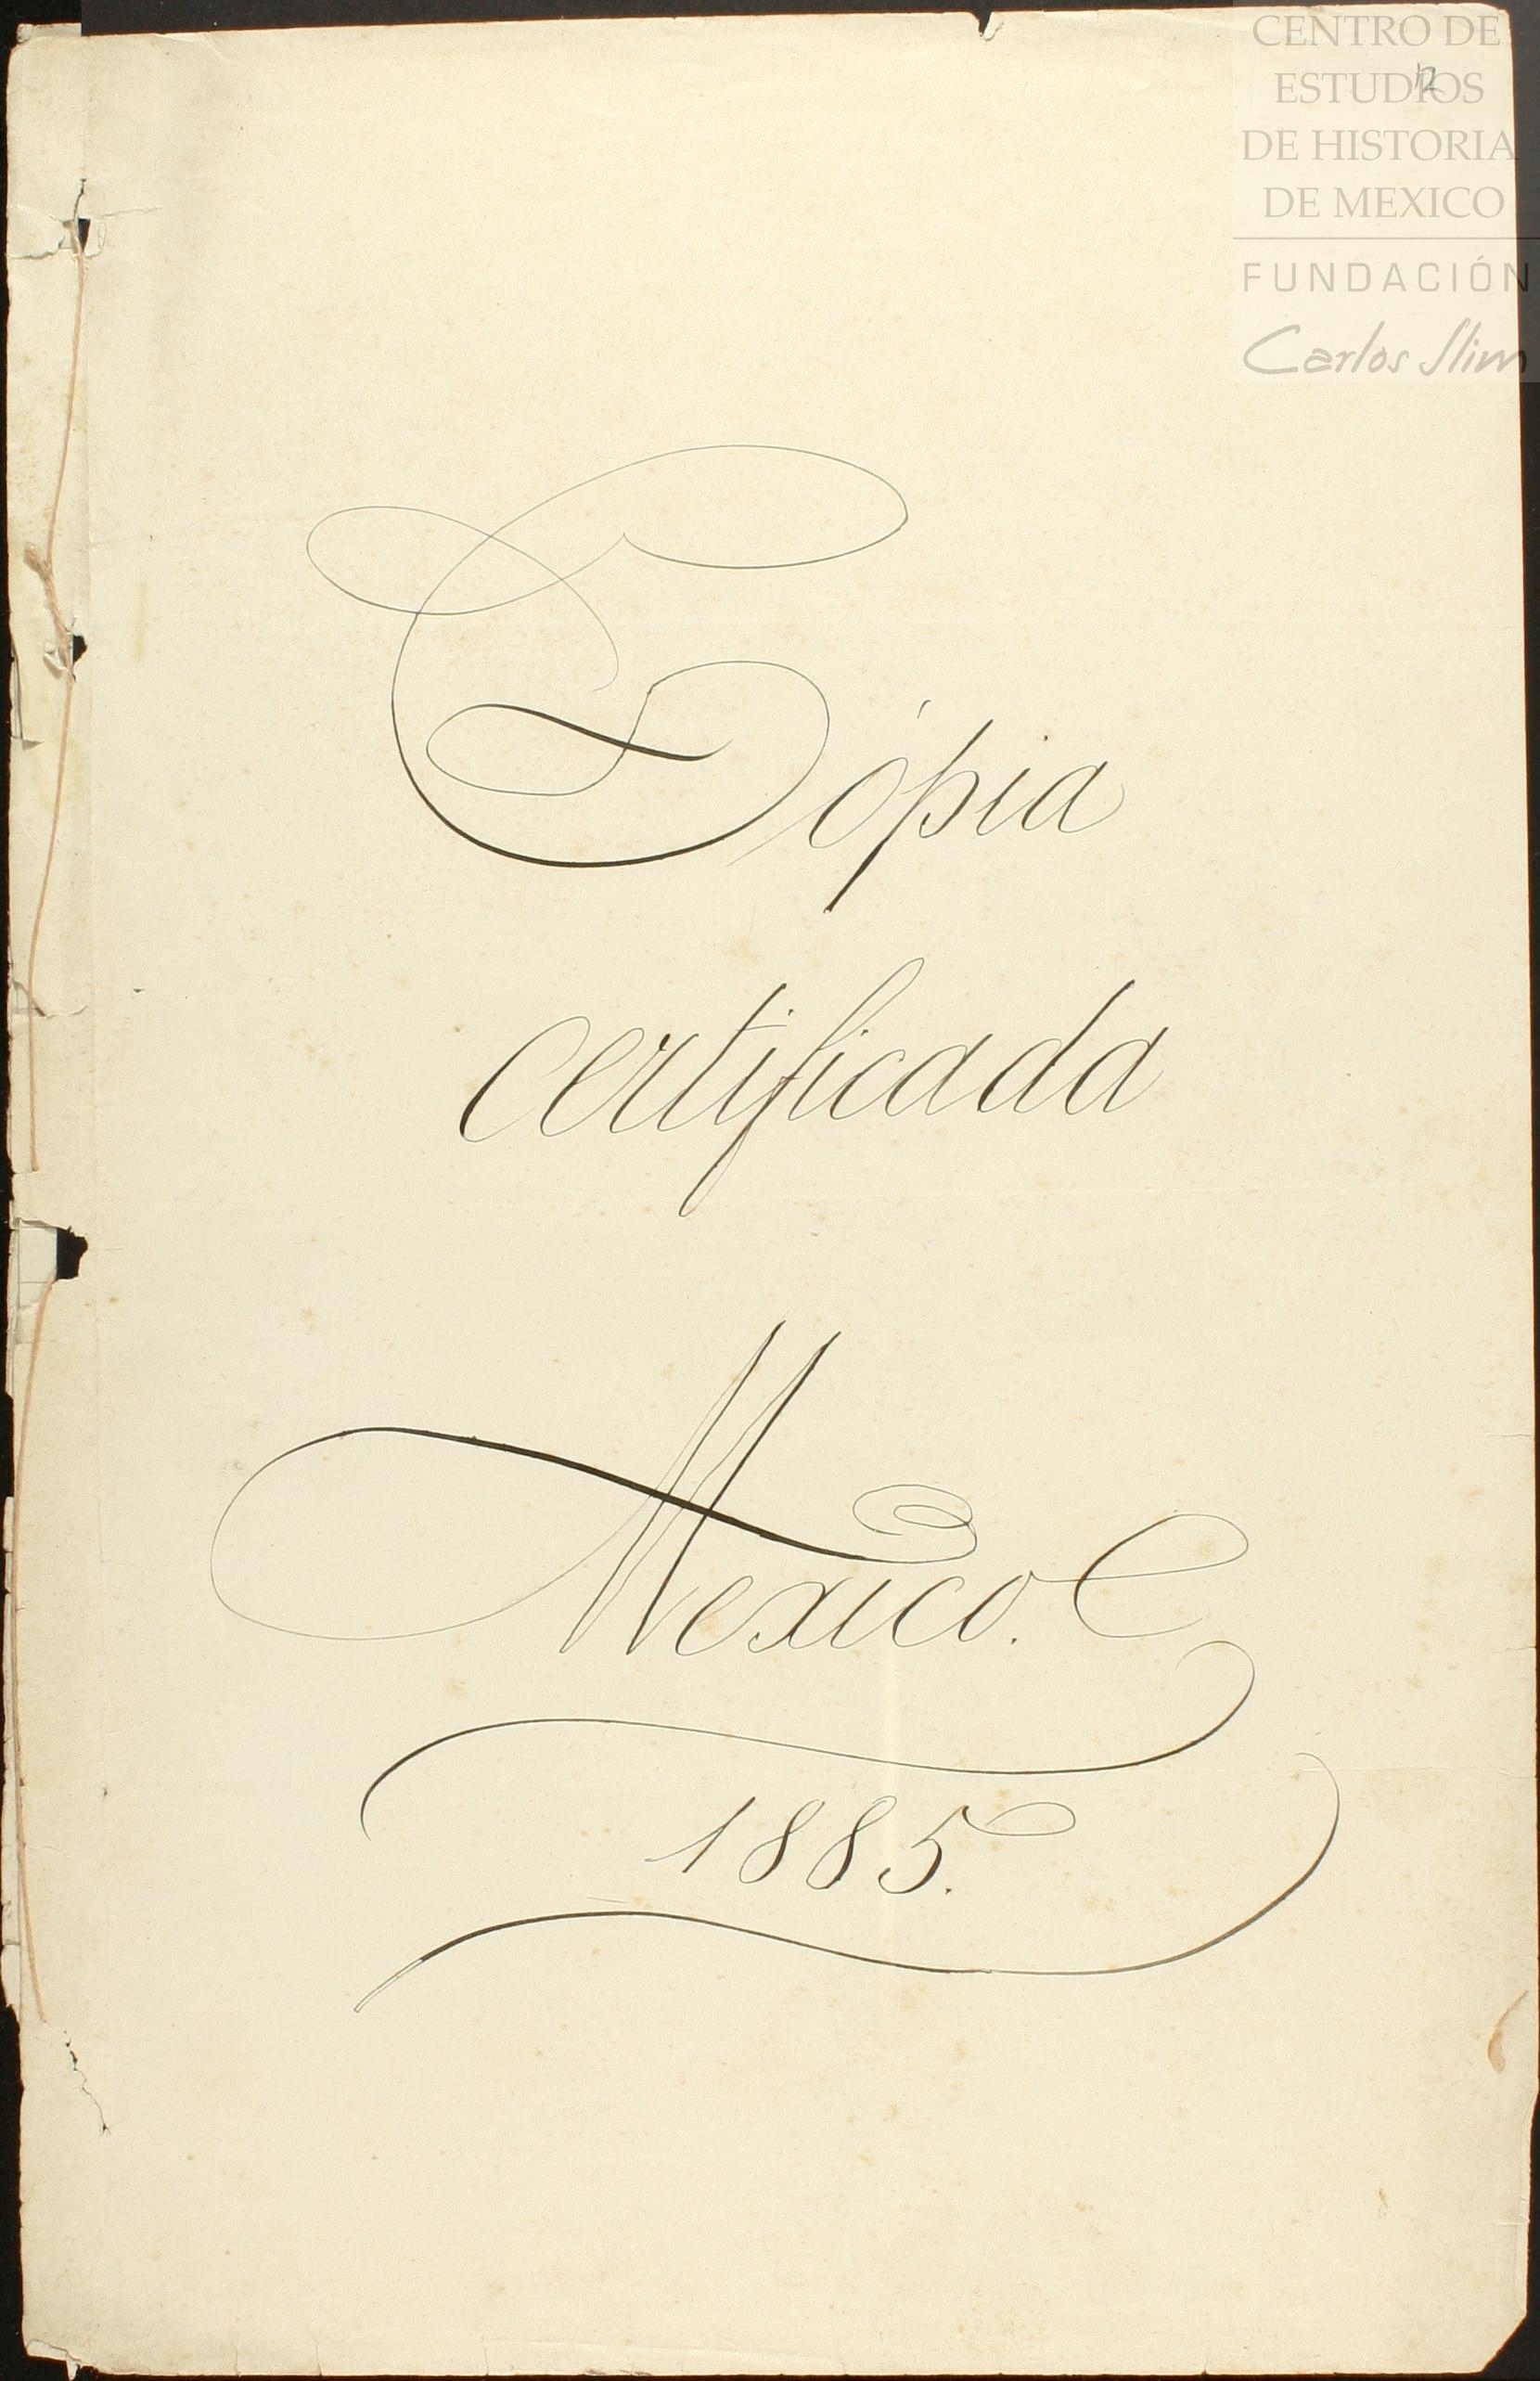 CENTRO DE
ESTUDIOS
DE HISTORIA
DE MEXICO
FUNDACIÓN
Carlos Slim
12
Cópia
certificada
Mexico.
1885.